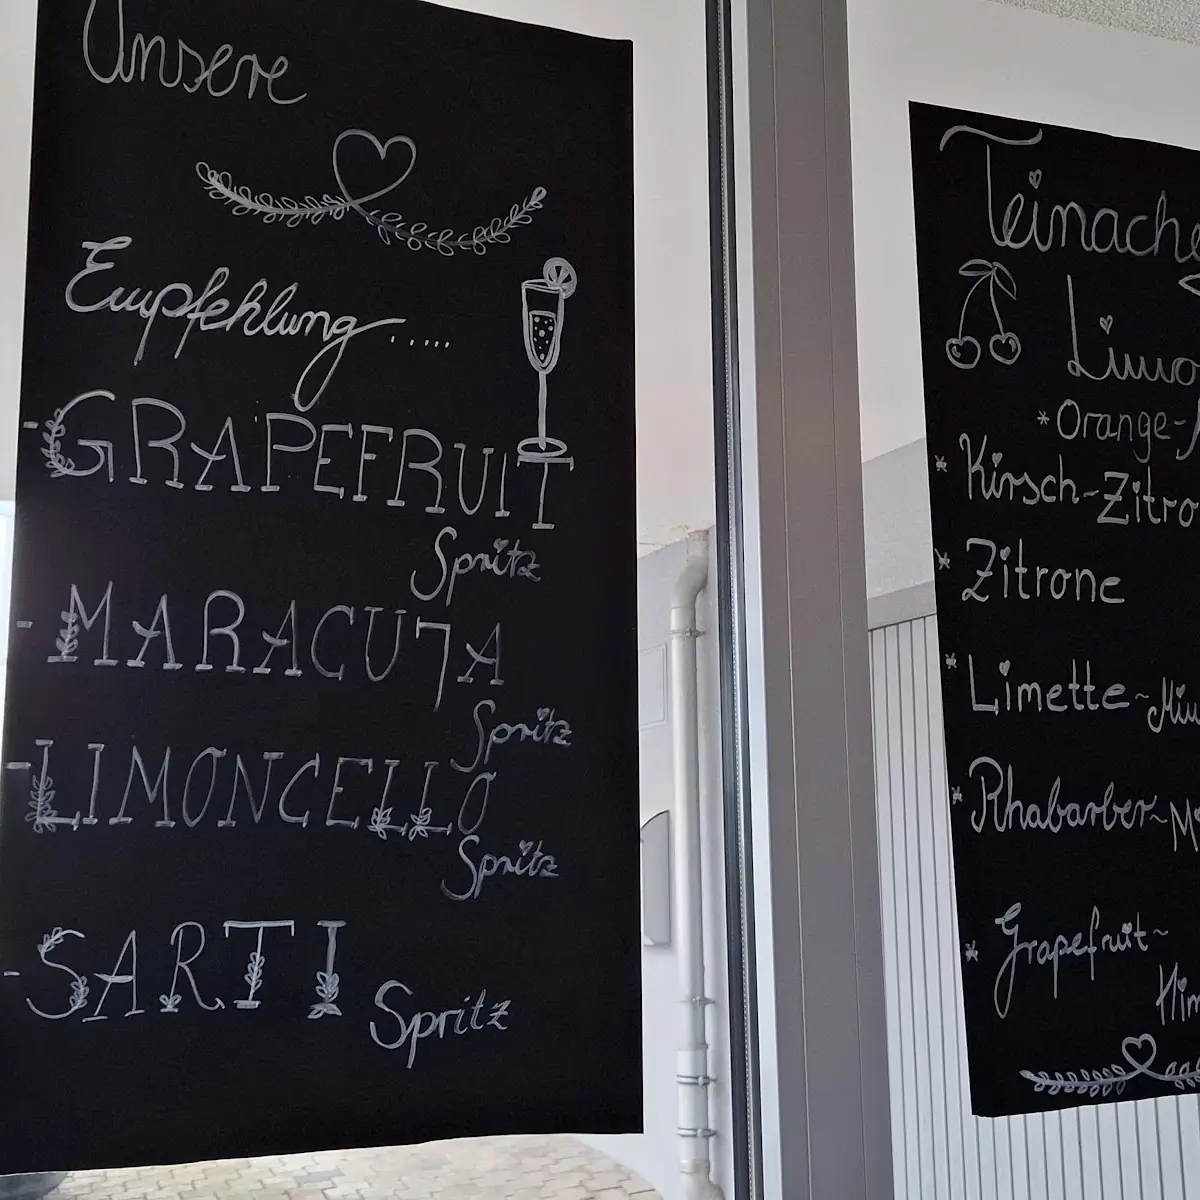 Unsere
Empfehlung.....
- GRAPEFRUIT
Spritz
- MARACUJA
Spritz
- LIMONCELLO
Spritz
- SARTI
Spritz
Teinache
Limo
* Orange-
* Kirsch-Zitro
* Zitrone
* Limette~
* Rhabarber~
* Grapefruit~
Him